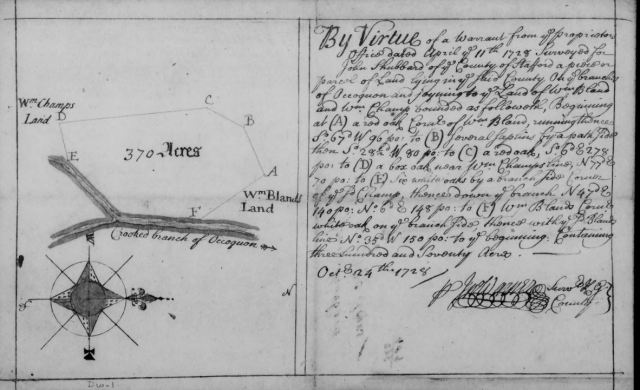 Wm Champs
Land
D
C
B
A
E
F
370 Acres
Wm Blands
Land
Crooked branch of Occoquon
N
By Virtue of a Warrant from ye Proprietors
Office dated April ye 11th 1728 Surveyed for
John Shubbard of ye County of Staford a piece or
parcel of Land lying in ye said County On ye branches
of Occoquon and joyning to ye Land of Wm Bland
and Wm Champ bounded as followeth. Beginning
at (A) a red oak Cornr of Wm Bland, running thence
So 63d W 96 po: to (B) Several saplins by a path side
then So 28d W 80 po: to (C) a red oak, So 6d E 278
po: to (D) a box oak near Wm Champs line, N 77d E
70 po: to (E) Six white oaks by a branch side Corner
of ye sd Champ, thence down ye branch N 47d E
140 po: No 6d E 148 po: to (F) Wm Blands Cornr
white oak on ye branch side thence with ye sd Blands
line No 35d W 150 po: to ye beginning. Containing
three hundred and Seventy Acres.
Oct 24th 1728
Survr
County